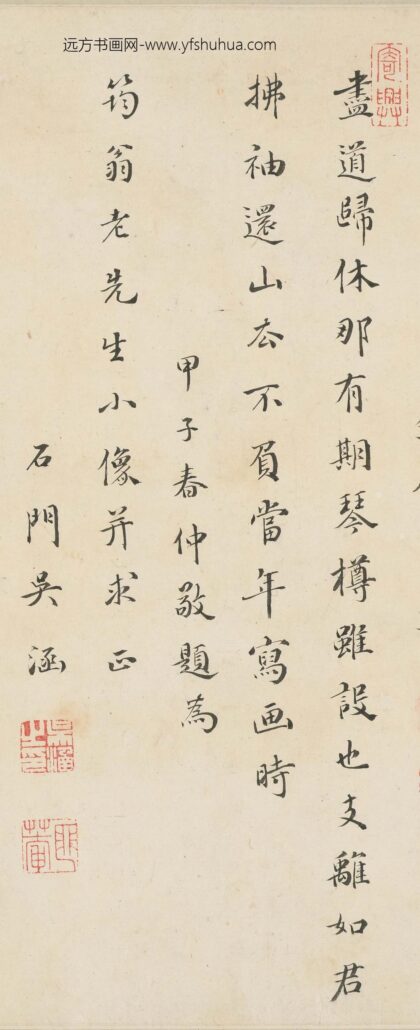 远方书画网-www.yfshuhua.com
寄興
盡道歸休那有期琴樽雖設也支離如君
拂袖還山去不負當年寫画時
甲子春仲敬題為
筠翁老先生小像并求正
石門吳涵